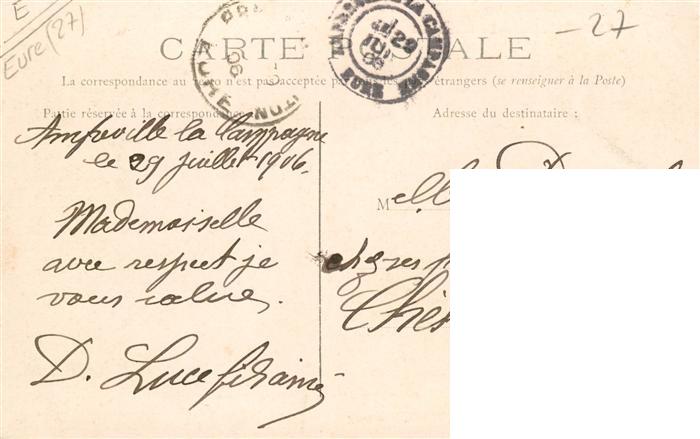 E
Eure (27)
-27
CARTE POSTALE
La correspondance au recto n'est pas acceptée par tous les pays étrangers (se renseigner à la Poste)
Partie réservée à la correspondance
Adresse du destinataire :
Amfreville la Campagne
le 29 juillet 1906.
Mademoiselle
avec respect je
vous salue.
D. Luce fils ainé
M elle D
chez ses
EURE
29
06
LA CAMPAGNE
EURE